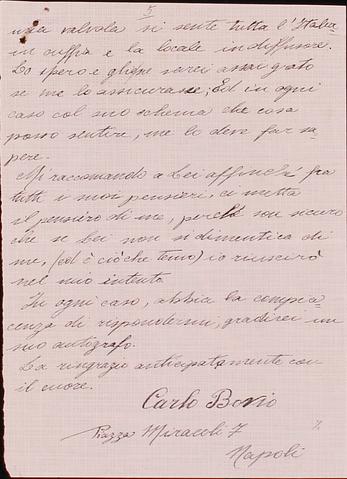 5
una valvola si sente tutta l'Italia
in cuffia e la locale in diffusore.
Lo spero e gliene sarei assai grato
se me lo assicurasse; Ed in ogni
caso col suo schema che cosa
posso sentire, me lo deve far sa-
pere.
Mi raccomando a Lei affinché fra
tutti i suoi pensieri, ci metta
il pensiero di me, perché son sicuro
che se Lei non si dimentica di
me, (ed è ciò che temo) io riuscirò
nel mio intento.
In ogni caso, abbia la compia-
cenza di rispondermi, gradirei un
suo autografo.
La ringrazio anticipatamente con
il cuore.
Carlo Bovio
Piazza Miracoli 7
Napoli